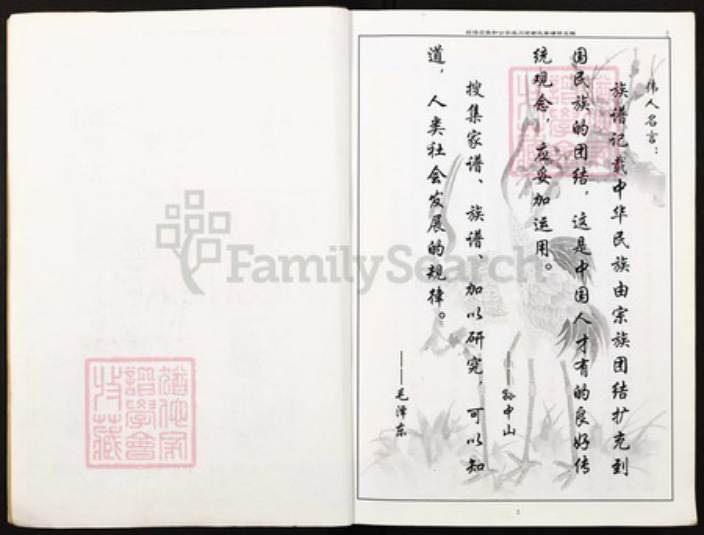 伟人名言：
族谱记载中华民族由宗族团结扩充到
国民族的团结，这是中国人才有的良好传
统观念，应妥加运用。
——孙中山
搜集家谱、族谱、加以研究，可以知
道，人类社会发展的规律。
——毛泽东
FamilySearch
猶他家
譜學會
特藏